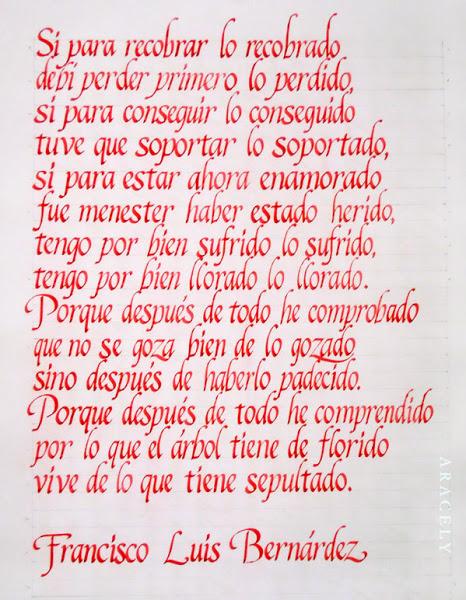 Si para recobrar lo recobrado
debí perder primero lo perdido,
si para conseguir lo conseguido
tuve que soportar lo soportado,
si para estar ahora enamorado
fue menester haber estado herido,
tengo por bien sufrido lo sufrido,
tengo por bien llorado lo llorado.
Porque después de todo he comprobado
que no se goza bien de lo gozado
sino después de haberlo padecido.
Porque después de todo he comprendido
por lo que el árbol tiene de florido
vive de lo que tiene sepultado.
Francisco Luis Bernárdez
ARACELY